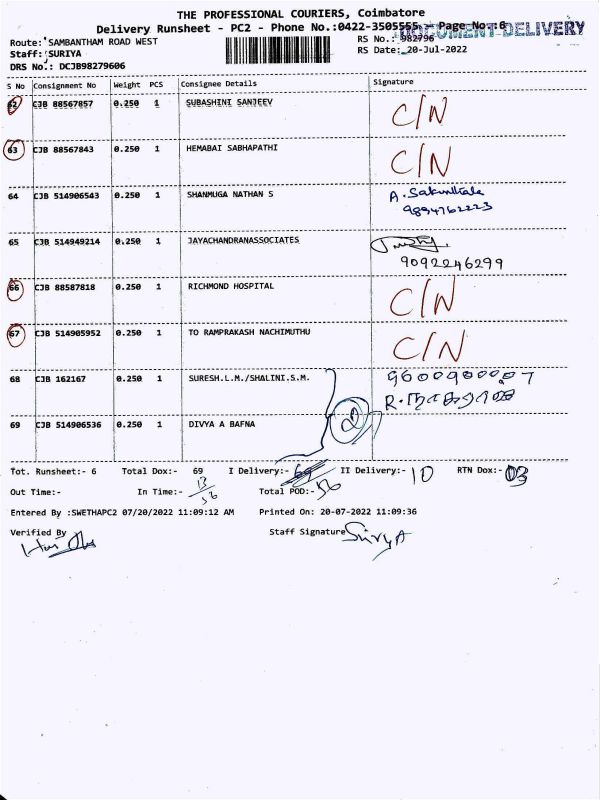 THE PROFESSIONAL COURIERS, Coimbatore
Delivery Runsheet - PC2 - Phone No.:0422-3505555, Page No.:6
DOCUMENT DELIVERY
Route: SAMBANTHAM ROAD WEST RS No.: 982796
Staff: SURIYA RS Date: 20-Jul-2022
DRS No.: DCJB98279606
S No Consignment No Weight PCS Consignee Details Signature
62 CJB 88567857 0.250 1 SUBASHINI SANJEEV C/N
63 CJB 88567843 0.250 1 HEMABAI SABHAPATHI C/N
64 CJB 514906543 0.250 1 SHANMUGA NATHAN S A. Sakunthala
9894762223
65 CJB 514949214 0.250 1 JAYACHANDRANASSOCIATES
9092246299
66 CJB 88587818 0.250 1 RICHMOND HOSPITAL C/N
67 CJB 514905952 0.250 1 TO RAMPRAKASH NACHIMUTHU C/N
68 CJB 162167 0.250 1 SURESH.L.M./SHALINI.S.M. 9600900007
R. நாகராஜ
69 CJB 514906536 0.250 1 DIVYA A BAFNA 2
Tot. Runsheet:- 6 Total Dox:- 69 I Delivery:- 69 II Delivery:- 10 RTN Dox:- 03
Out Time:- In Time:- 13/56 Total POD:- 56
Entered By :SWETHAPC2 07/20/2022 11:09:12 AM Printed On: 20-07-2022 11:09:36
Verified By Staff Signature SuryA